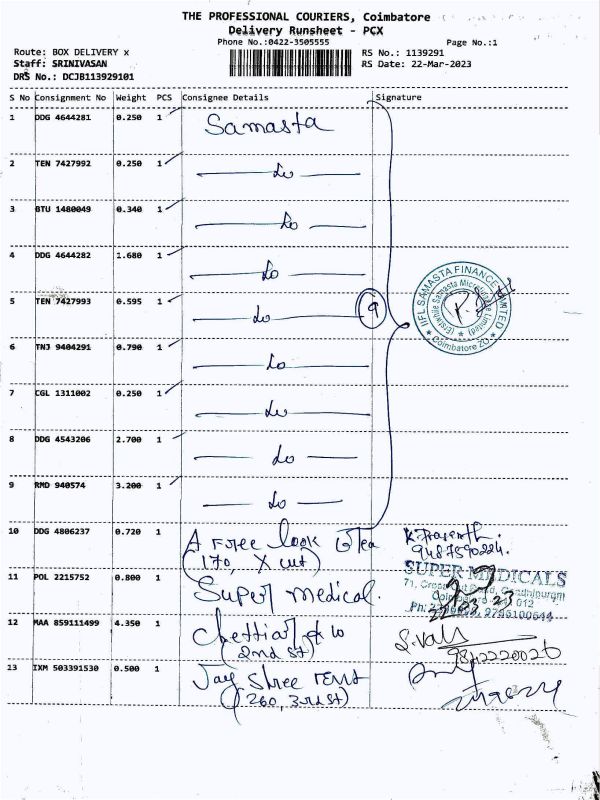 THE PROFESSIONAL COURIERS, Coimbatore
Delivery Runsheet - PCX
Phone No.:0422-3505555
Page No.:1
Route: BOX DELIVERY x
RS No.: 1139291
Staff: SRINIVASAN
RS Date: 22-Mar-2023
DRS No.: DCJB113929101
S No Consignment No Weight PCS Consignee Details Signature
1 DDG 4644281 0.250 1 Samasta
2 TEN 7427992 0.250 1 Do
3 BTU 1480049 0.340 1 Do
4 DDG 4644282 1.680 1 Do
5 TEN 7427993 0.595 1 Do 9
IIFL SAMASTA FINANCE LIMITED
(Erstwhile Samasta Microfinance Limited)
Coimbatore ZO
6 TNJ 9404291 0.790 1 Do
7 CGL 1311002 0.250 1 Do
8 DDG 4543206 2.700 1 Do
9 RMD 940574 3.200 1 Do
10 DDG 4806237 0.720 1 A Free look
(170, X cut)
K. Prasenth.
9487590224.
11 POL 2215752 0.800 1 Super medical.
SUPER MEDICALS
71, Cross Gandhipuram
Coimbatore 641 012
12 MAA 859111499 4.350 1 Chettiar
2nd st)
9842220026
13 IXM 503391530 0.500 1 Jay Shree
(260, 3rd st)